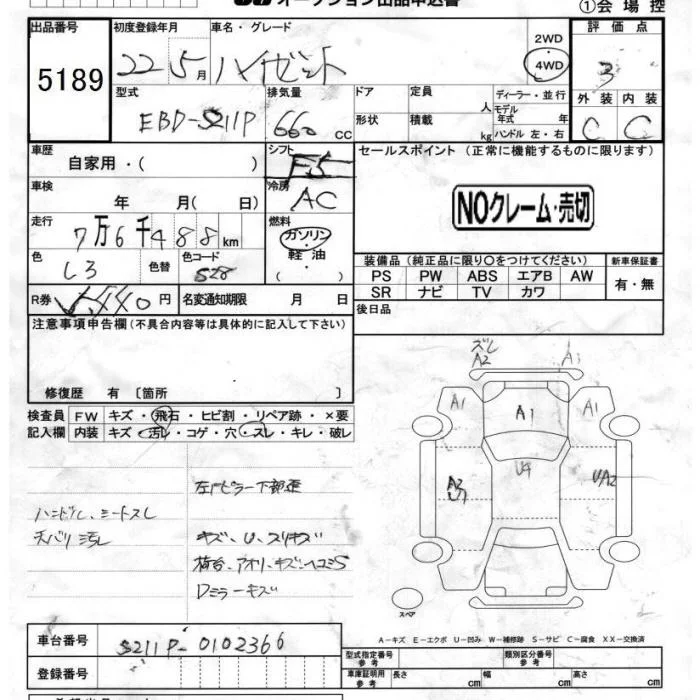 オークション出品申込書
①会場控
出品番号 初度登録年月 車名・グレード 評価点
5189 22 5月 ハイゼット 2WD 4WD 3
型式 排気量 ドア 定員 人 ディーラー・並行 外装 内装
EBD-S211P 660 CC 形状 積載 kg モデル年式 年 ハンドル 左・右 C C
車歴 シフト セールスポイント (正常に機能するものに限ります)
自家用・( ) F5
車検 冷房
年 月( 日) AC NOクレーム・売切
走行 燃料
7万6千488km ガソリン
色 色替 色コード 軽油
しろ S28 ( )
装備品 (純正品に限り○をつけてください) 新車保証書
PS PW ABS エアB AW 有・無
SR ナビ TV カワ
R券 円 名変通知期限 月 日
後日品
注意事項申告欄(不具合内容等は具体的に記入して下さい)
修復歴 有 [箇所 ]
検査員 FW キズ・飛石・ヒビ割・リペア跡・×要
記入欄 内装 キズ・汚レ・コゲ・穴・スレ・キレ・破レ
ズレ
A2 A3
A1 A1 A1
U4
A2 U/A2
左Fピラー下部歪
ハンドル、シートスレ
天バリ汚レ キズ、U、スリキズ
荷台、アオリ、キズ・ヘコミS
Dミラーキズ
スペア
A-キズ E-エクボ U-凹み W-補修跡 S-サビ C-腐食 XX-交換済
車台番号 S211P-0102366
型式指定番号 参考 類別区分番号 参考
登録番号
車庫証明用 参考 長さ cm 幅 cm 高さ cm